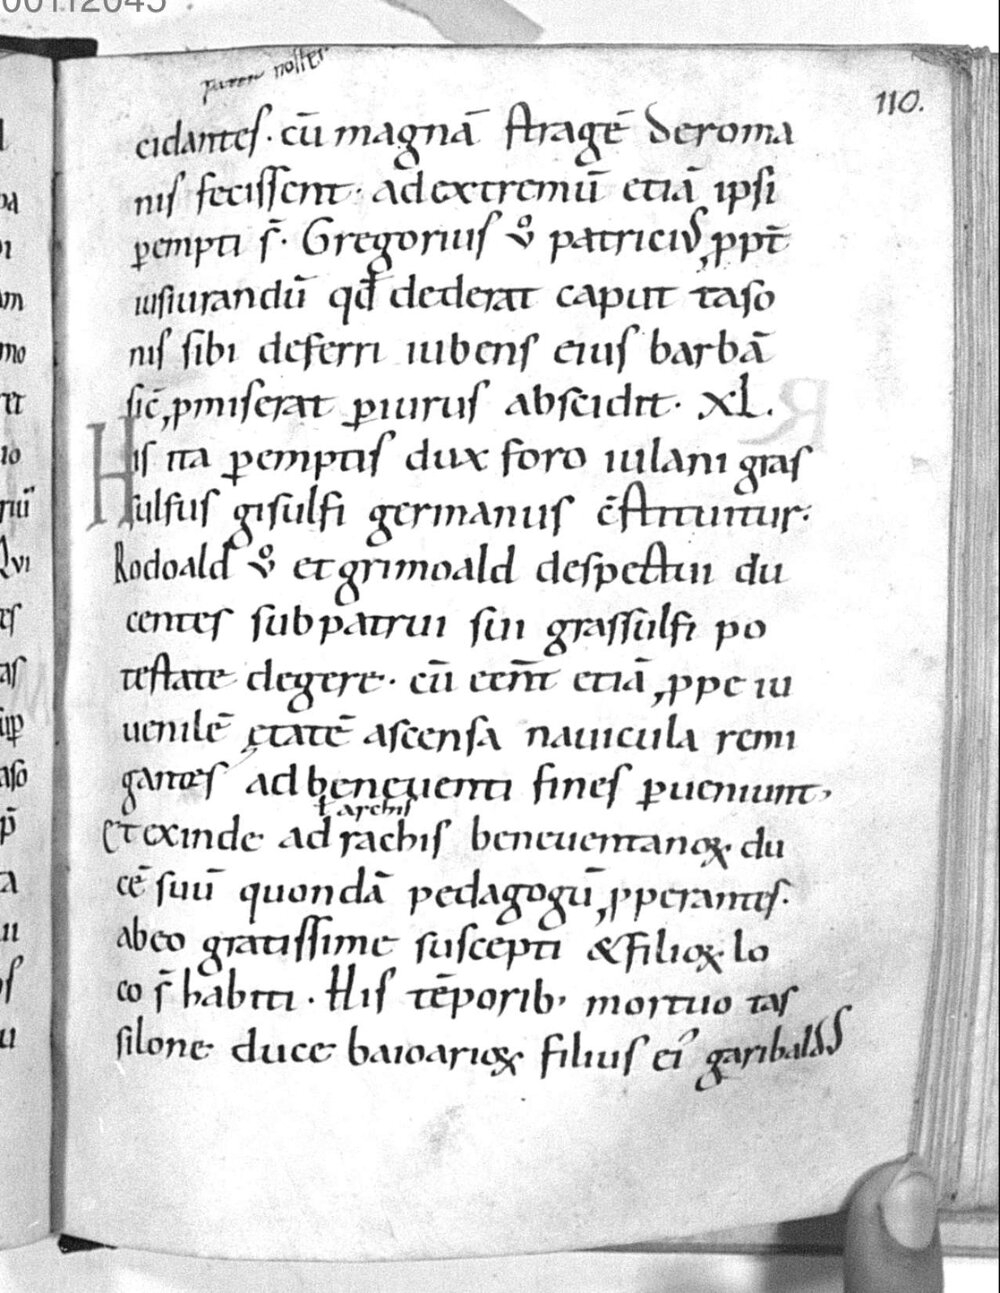 noster
110.
cidantes. cū magnā stragē de roma
nis fecissent. ad extremū etiā ipsi
pempti s̄. Gregorius v̊ patricius, ppt̄
iusiurandū qđ dederat caput taso
nis sibi deferri iubens eius barbā
sic̄, pmiserat piurus abscidit. XL.
His ita pemptis dux foro iulani gras
sulfus gisulfi germanus c̄stituitur.
Rodoald v̊ et grimoald despectui du
centes sub patrui sui grassulfi po
testate degere. cū eēnt etiā, ppe iu
uenilē ętatē ascensa nauicula remi
gantes ad beneuenti fines pueniunt,
ł archis
Et exinde ad rachis beneuentanoꝝ. du
cē suū quondā pedagogū, pperantes.
ab eo gratissime suscepti & filioꝝ lo
co s̄ habiti. His tēporib, mortuo tas
silone duce baioarioꝝ filius ei' garibald